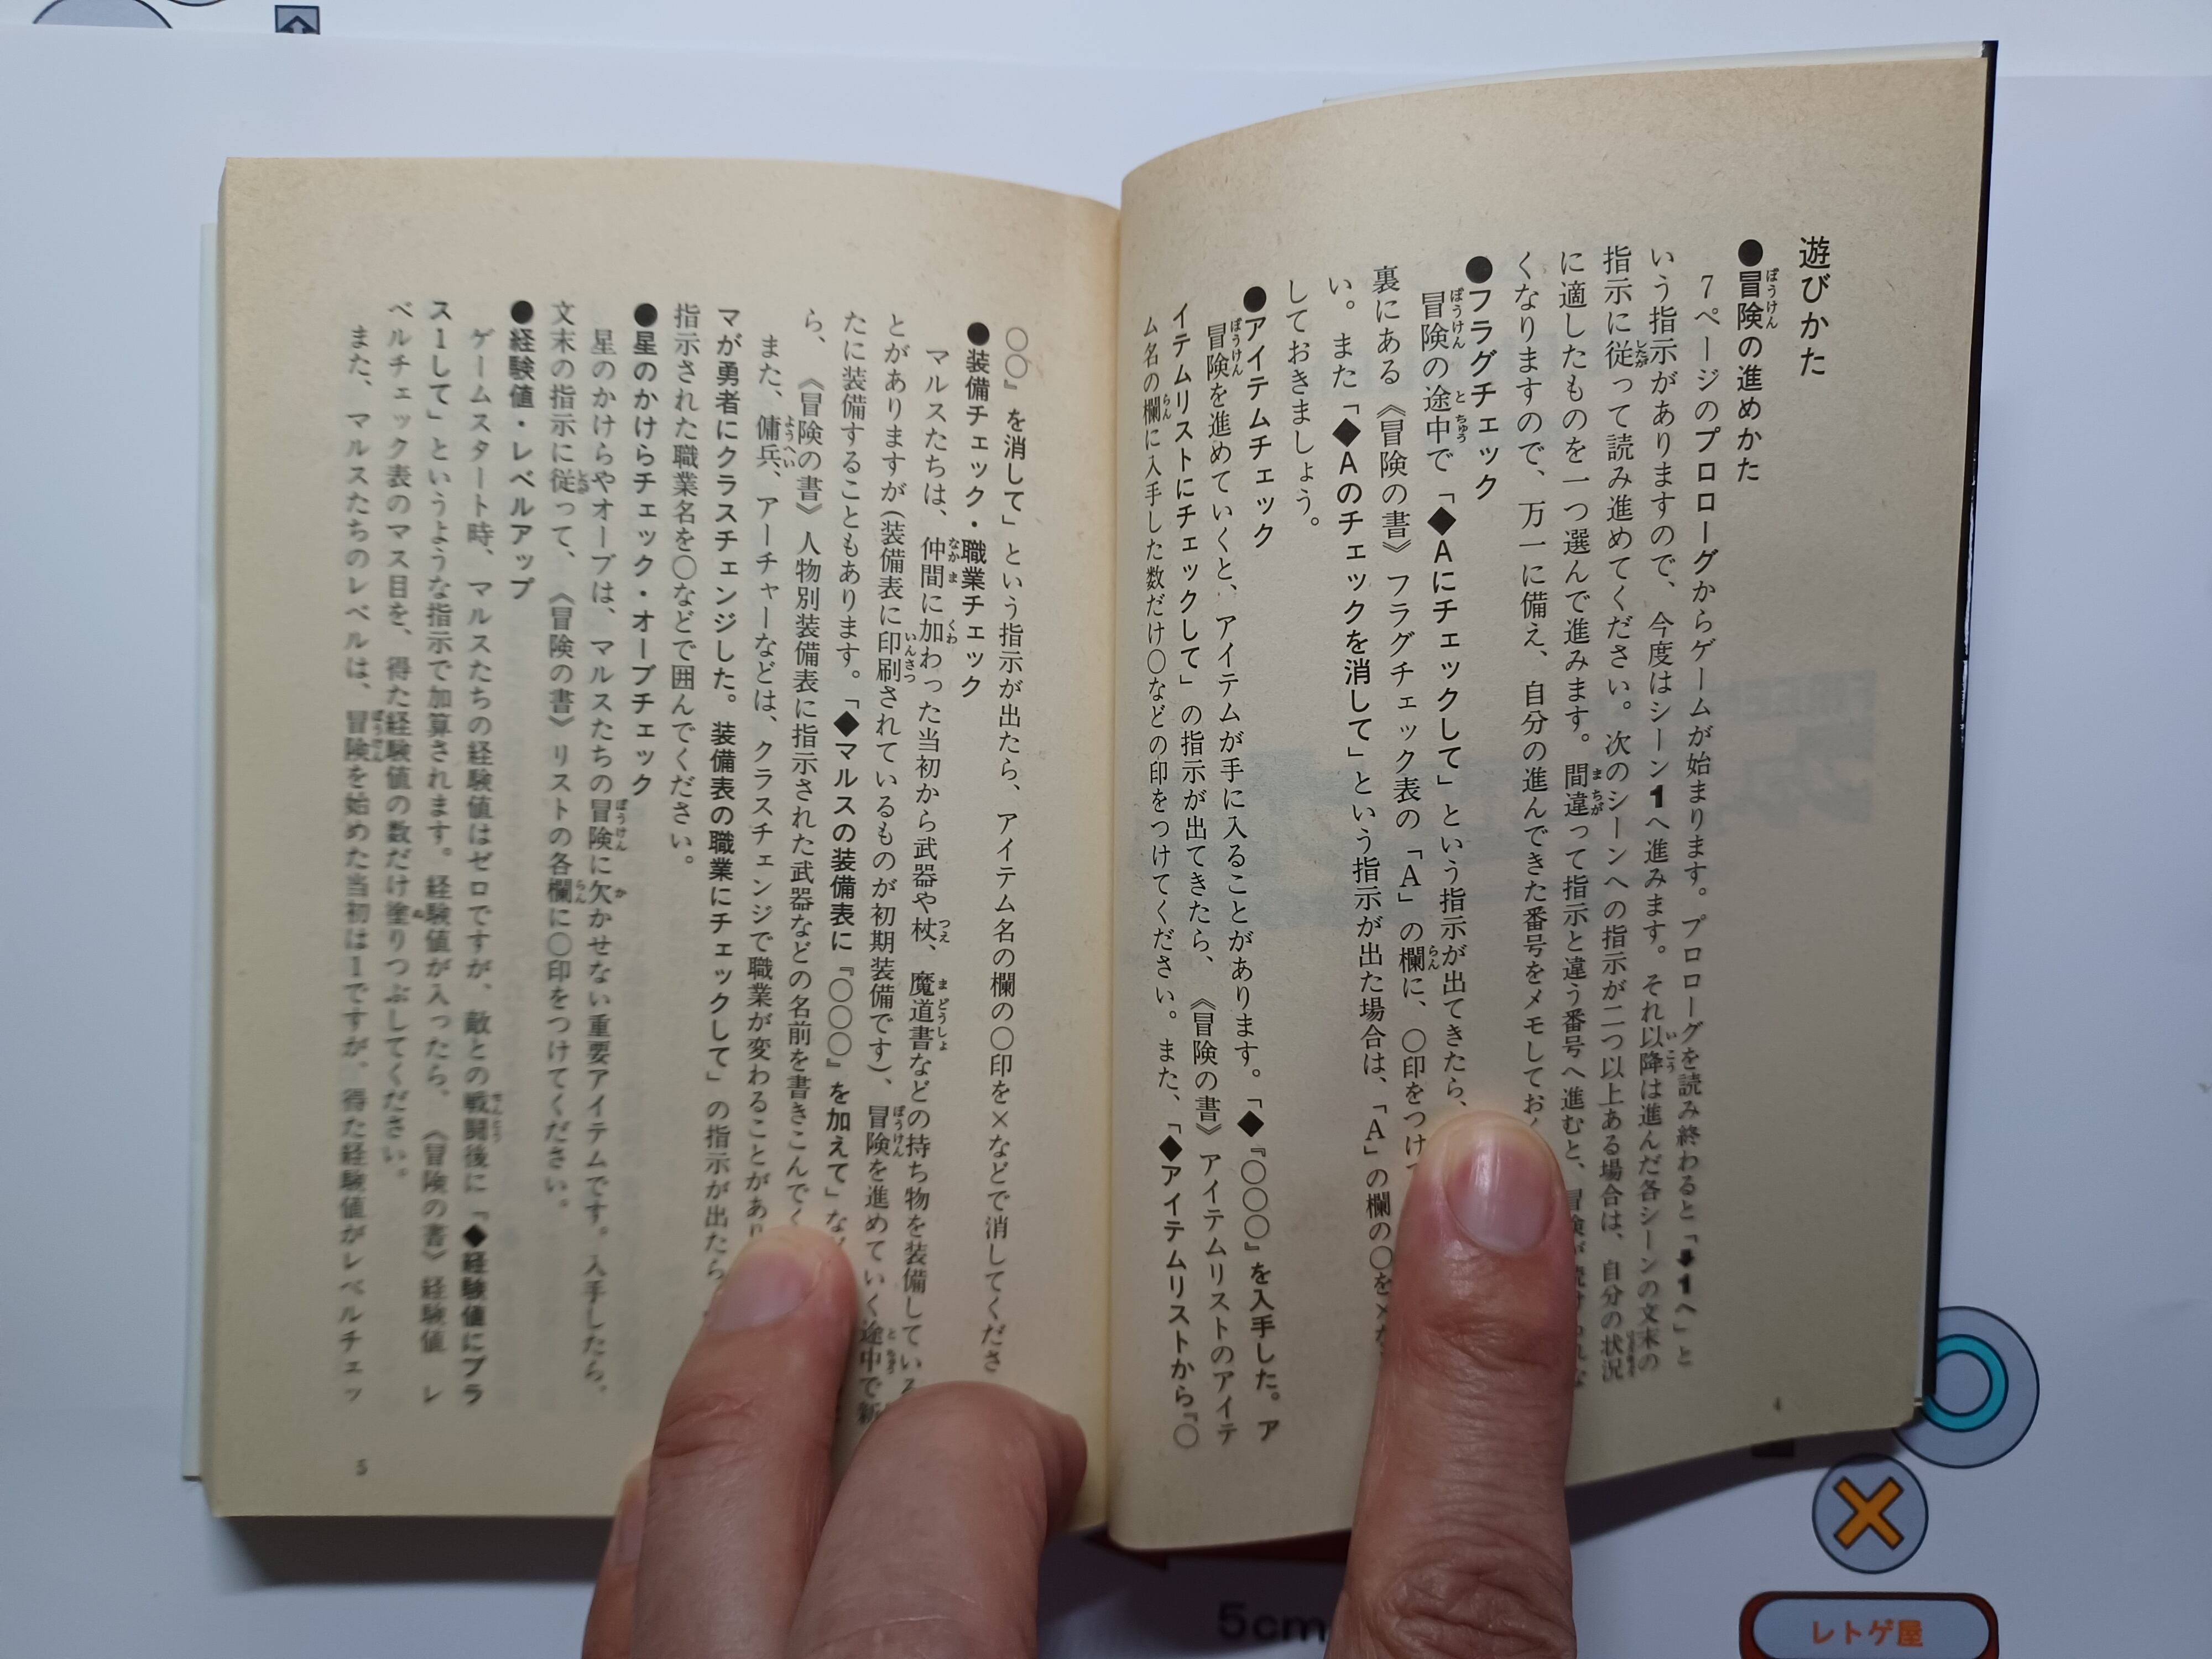 遊びかた
●冒険の進めかた
7ページのプロローグからゲームが始まります。プロローグを読み終わると「➡1へ」と
いう指示がありますので、今度はシーン1へ進みます。それ以降は進んだ各シーンの文末の
指示に従って読み進めてください。次のシーンへの指示が二つ以上ある場合は、自分の状況
に適したものを一つ選んで進みます。間違って指示と違う番号へ進むと、冒険が続けられな
くなりますので、万一に備え、自分の進んできた番号をメモしてお
●フラグチェック
冒険の途中で「◆Aにチェックして」という指示が出てきたら、
裏にある《冒険の書》フラグチェック表の「A」の欄に、○印をつけ
い。また「◆Aのチェックを消して」という指示が出た場合は、「A」の欄の○を×な
しておきましょう。
●アイテムチェック
冒険を進めていくと、アイテムが手に入ることがあります。「◆『○○○』を入手した。ア
イテムリストにチェックして」の指示が出てきたら、《冒険の書》アイテムリストのアイテ
ム名の欄に入手した数だけ○などの印をつけてください。また、「◆アイテムリストから『○
4
○○』を消して」という指示が出たら、アイテム名の欄の○印を×などで消してくださ
●装備チェック・職業チェック
マルスたちは、仲間に加わった当初から武器や杖、魔道書などの持ち物を装備している
とがありますが(装備表に印刷されているものが初期装備です)、冒険を進めていく途中で新
たに装備することもあります。「◆マルスの装備表に『○○○』を加えて」な
ら、《冒険の書》人物別装備表に指示された武器などの名前を書きこんでく
また、傭兵、アーチャーなどは、クラスチェンジで職業が変わることがあり
マが勇者にクラスチェンジした。装備表の職業にチェックして」の指示が出たら
指示された職業名を○などで囲んでください。
●星のかけらチェック・オーブチェック
星のかけらやオーブは、マルスたちの冒険に欠かせない重要アイテムです。入手したら、
文末の指示に従って、《冒険の書》リストの各欄に○印をつけてください。
●経験値・レベルアップ
ゲームスタート時、マルスたちの経験値はゼロですが、敵との戦闘後に「◆経験値にプラ
ス1して」というような指示で加算されます。経験値が入ったら、《冒険の書》経験値 レ
ベルチェック表のマス目を、得た経験値の数だけ塗りつぶしてください。
また、マルスたちのレベルは、冒険を始めた当初は1ですが、得た経験値がレベルチェッ
5
5cm
レトゲ屋